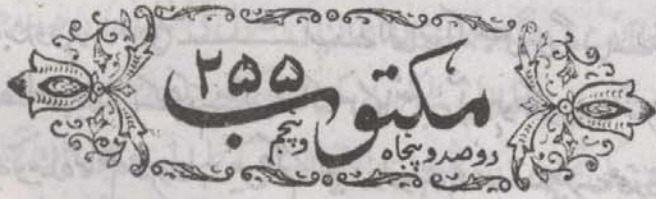 مکتوب ۲۵۵
دو صد و پنجاه و پنجم